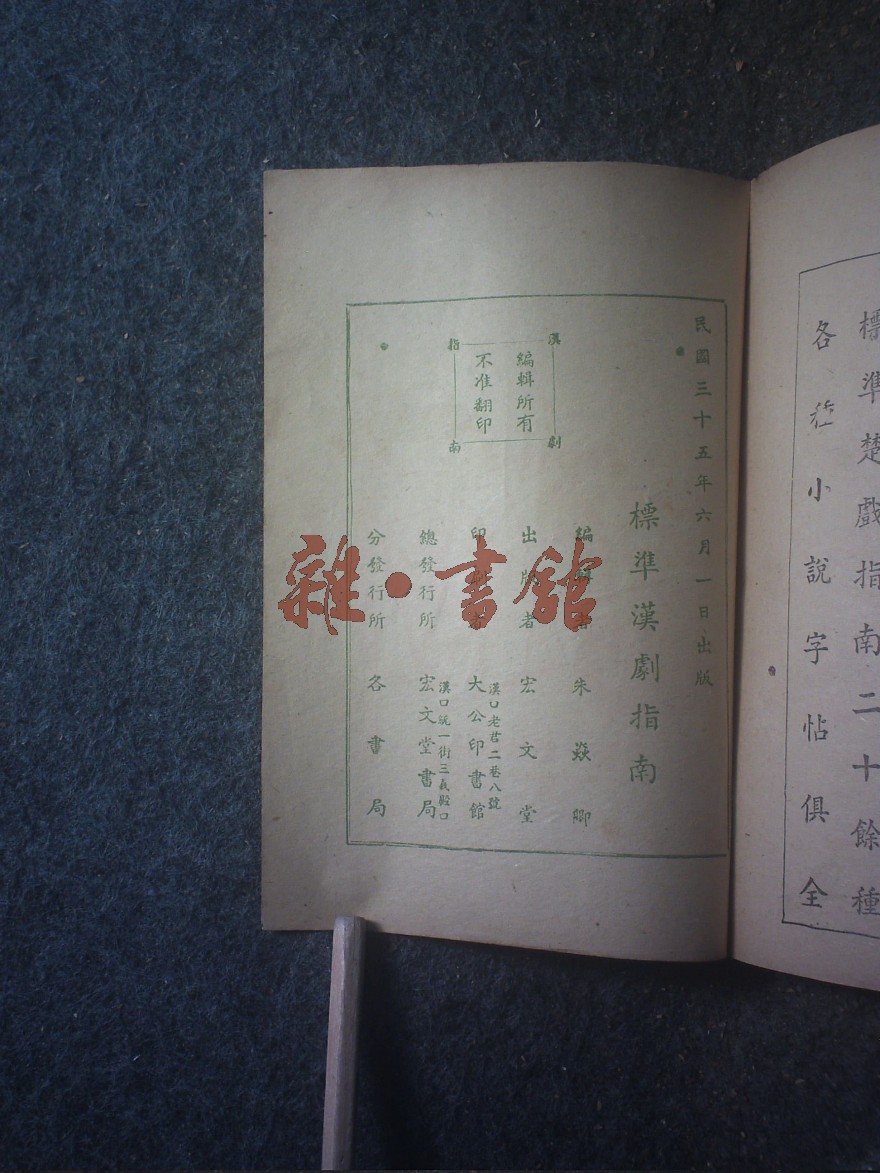 標準楚戲指南二十餘種
各種小說字帖俱全
民國三十五年六月一日出版
標準漢劇指南
編輯者 朱焱卿
出版者 宏文堂
漢口老君二巷八號
印刷者 大公印書館
漢口統一街三義殿口
總發行所 宏文堂書局
分發行所 各書局
漢劇指南
編輯所有
不准翻印
雜·書館